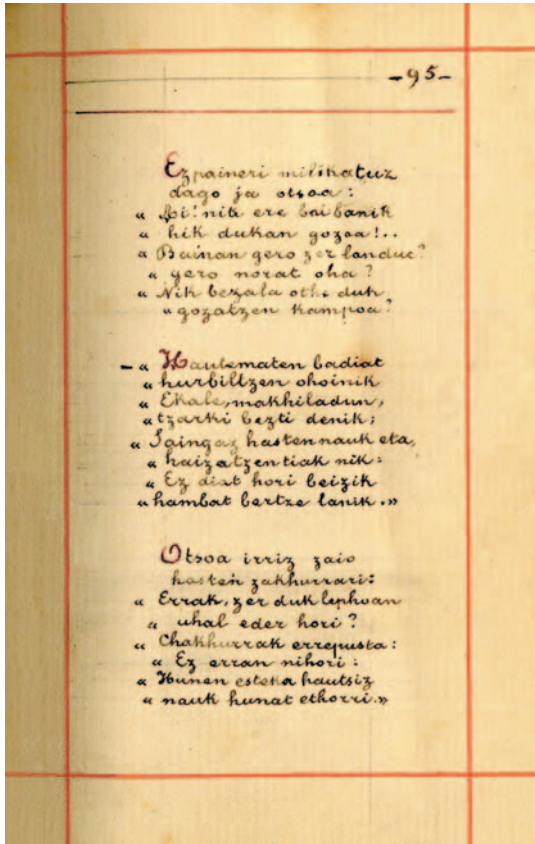 -95-
Ezpaineri milikatuz
dago ja otsoa:
« Ai! nik ere baibanik
« hik dukan gozoa!..
« Bainan gero zer landuc?
« gero norat oha?
« Nik bezala othe duk
« gozatzen kampoa?
–« Hautematen badiat
« hurbiltzen ohoinik
« Ekale, makhiladun,
« tzarki bezti denik;
« Saingaz hasten nauk eta,
« haizatzen tiak nik:
« Ez diat hori beizik
« hambat bertze lanik.»
Otsoa irriz zaio
hasten zakhurrari:
« Errak, zer duk lephoan
« uhal eder hori?
« Chakhurrak errepusta:
« Ez erran nihori:
« Hunen esteka hautsiz
« nauk hunat ethorri.»